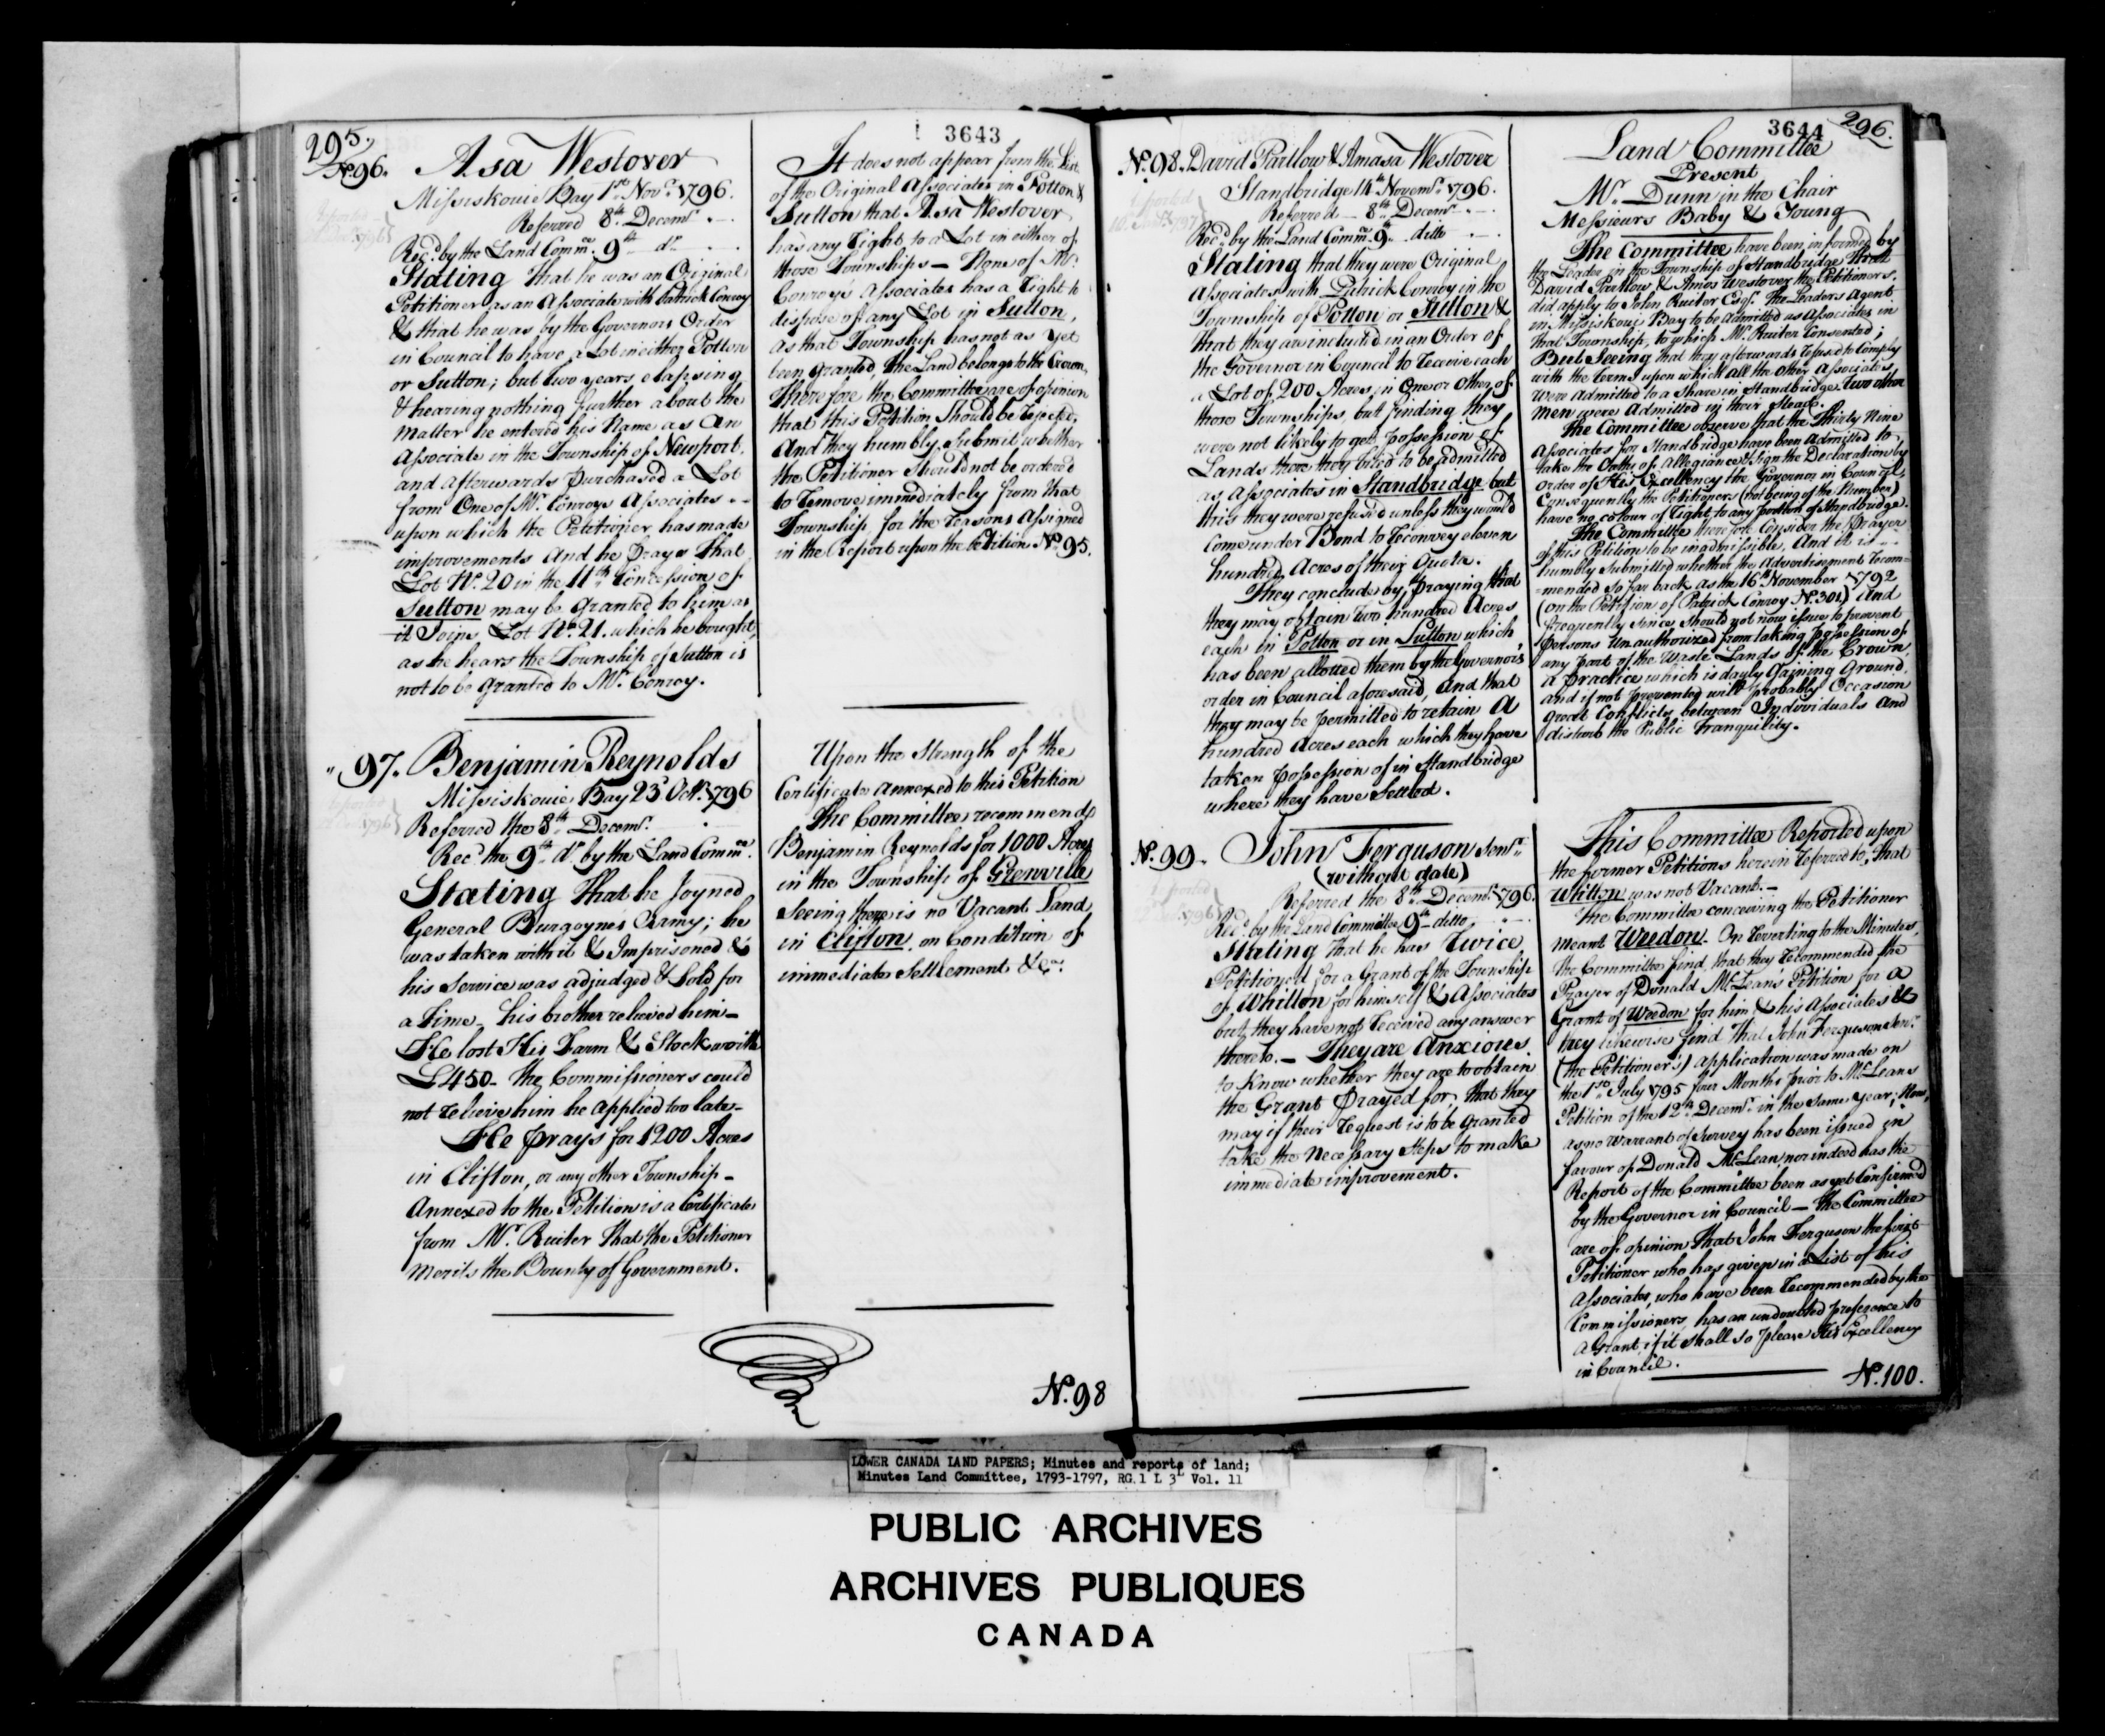 295.
3643
No. 96. Asa Westover
Missiskouie Bay 1st Novr. 1796.
Referred 8th Decemr. . —
Recd. by the Land Commee. 9th do. . .
Stating that he was an Original
Petitioner as an Associate with Patrick Conroy
& that he was by the Governors Order
in Council to have a Lot in either Potton
or Sutton; but two years elapsing
& hearing nothing further about the
matter he entered his Name as an
Associate in the Township of Newport,
and afterwards purchased a Lot
from One of Mr. Conroys Associates - -
upon which the Petitioner has made
improvements And he prays That
Lot No. 20 in the 11th Concession of
Sutton may be granted to him as
it Joins Lot No. 21. which he bought,
as he hears the Township of Sutton is
not to be granted to Mr. Conroy.
It does not appear from the List
of the Original Associates in Potton &
Sutton that Asa Westover
has any right to a Lot in either of
those Townships — None of Mr.
Conroys Associates has a right to
dispose of any Lot in Sutton,
as that Township has not as yet
been granted, the Land belongs to the Crown,
Therefore the Committee are of opinion
that this Petition Should be rejected,
And they humbly Submit whether
the Petitioner Should not be ordered
to remove immediately from that
Township for the reasons Assigned
in the Report upon the Petition No. 95.
" 97. Benjamin Reynolds
Missiskouie Bay 23d Octr. 1796
Referred the 8th Decemr. .
Recd. the 9th do. by the Land Commee.
Stating That he Joyned
General Burgoynes Army; he
was taken with it & Imprisoned &
his Service was adjudged & Sold for
a time — his brother relieved him —
He lost His Farm & Stock worth
£450 — the Commissioners could
not relieve him he applied too late —
He prays for 1200 Acres
in Clifton, or any other Township —
Annexed to the Petition is a Certificate
from Mr. Ruiter that the Petitioner
merits the Bounty of Government.
Upon the Strength of the
Certificate annexed to this Petition
The Committee recommends
Benjamin Reynolds for 1000 Acres
in the Township of Grenville
Seeing there is no Vacant Land
in Clifton, on Condition of
immediate Settlement &ca.
No. 98
3644 296.
No. 98. David Partlow & Amasa Westover
Standbridge 14th Novemr. 1796.
Referred — 8th Decemr. . —
Recd. by the Land Commee. 9th ditto . —
Stating that they were Original
Associates with Patrick Conroy in the
Township of Potton or Sutton &
that they are included in an Order of
the Governor in Council to receive each
a Lot of 200 Acres in One or other of
those Townships, but finding they
were not likely to get possession of
Lands there they tried to be admitted
as Associates in Standbridge but
this they were refused unless they would
come under Bond to reconvey eleven
hundred Acres of their Quota.
They conclude by praying that
they may obtain two hundred Acres
each in Potton or in Sutton which
has been allotted them by the Governors
order in Council aforesaid, and that
they may be permitted to retain a
hundred Acres each which they have
taken possession of in Standbridge
where they have Settled.
Land Committee
Present
Mr. Dunn in the Chair
Messieurs Baby & Young
The Committee have been informed by
the Leader in the Township of Standbridge that
David Partlow & Amos Westover the Petitioners,
did apply to John Ruiter Esqr. the Leaders Agent
in Missiskoui Bay to be admitted as Associates in
that Township, to which Mr. Ruiter Consented;
But Seeing that they afterwards refused to Comply
with the terms upon which all the other Associates
were Admitted to a Share in Standbridge two other
men were Admitted in their Stead.
The Committee observe that the Thirty Nine
Associates for Standbridge have been Admitted to
take the Oaths of Allegiance & Sign the Declaration by
order of His Excellency the Governor in Council,
Consequently the Petitioners (not being of the Number)
have no colour of right to any portion of Standbridge.
The Committee therefore Consider the Prayer
of this Petition to be inadmissible, And it is - -
humbly Submitted whether the Advertisement recom=
=mended So far back as the 16th November 1792
(on the Petition of Patrick Conroy No. 301.) And
frequently since Should not now issue to prevent
Persons Unauthorized from taking possession of
any part of the Waste Lands of the Crown,
a practice which is dayly Gaining Ground,
and if not prevented will probably Occasion
Great Conflicts between Individuals and
disturb the Public tranquility.
No. 99. John Ferguson Senr.
(without date)
Referred the 8th Decemr. 1796.
Recd. by the Land Committee 9th ditto
Stating that he has twice
Petitioned for a Grant of the Township
of Whitton for himself & Associates
but they have not received any answer
thereto. — They are Anxious
to Know whether they are to obtain
the Grant prayed for, that they
may if their request is to be granted
take the necessary Steps to make
immediate improvement.
This Committee Reported upon
the former Petitions herein referred to, that
Whitton was not Vacant. —
The Committee conceiving the Petitioner
meant Weedon. On reverting to the Minutes,
the Committee find, that they recommended the
Prayer of Donald McLean's Petition for a
Grant of Weedon for him & his Associates &
they likewise find That John Ferguson Senr.
(the Petitioner's) application was made on
the 1st July 1795 four Months prior to McLeans
Petition of the 12th Decemr. in the same year; Now,
as no Warrant of Survey has been issued in
favour of Donald McLean, nor indeed has the
Report of the Committee been as yet Confirmed
by the Governor in Council — the Committee
are of opinion That John Ferguson the first
Petitioner who has given in a List of his
Associates, who have been recommended by the
Commissioners, has an undoubted preference to
a Grant, if it shall so please His Excellency
in Council.
No. 100.
LOWER CANADA LAND PAPERS; Minutes and reports of land;
Minutes Land Committee, 1793-1797, RG.1 L 3L Vol. 11
PUBLIC ARCHIVES
ARCHIVES PUBLIQUES
CANADA